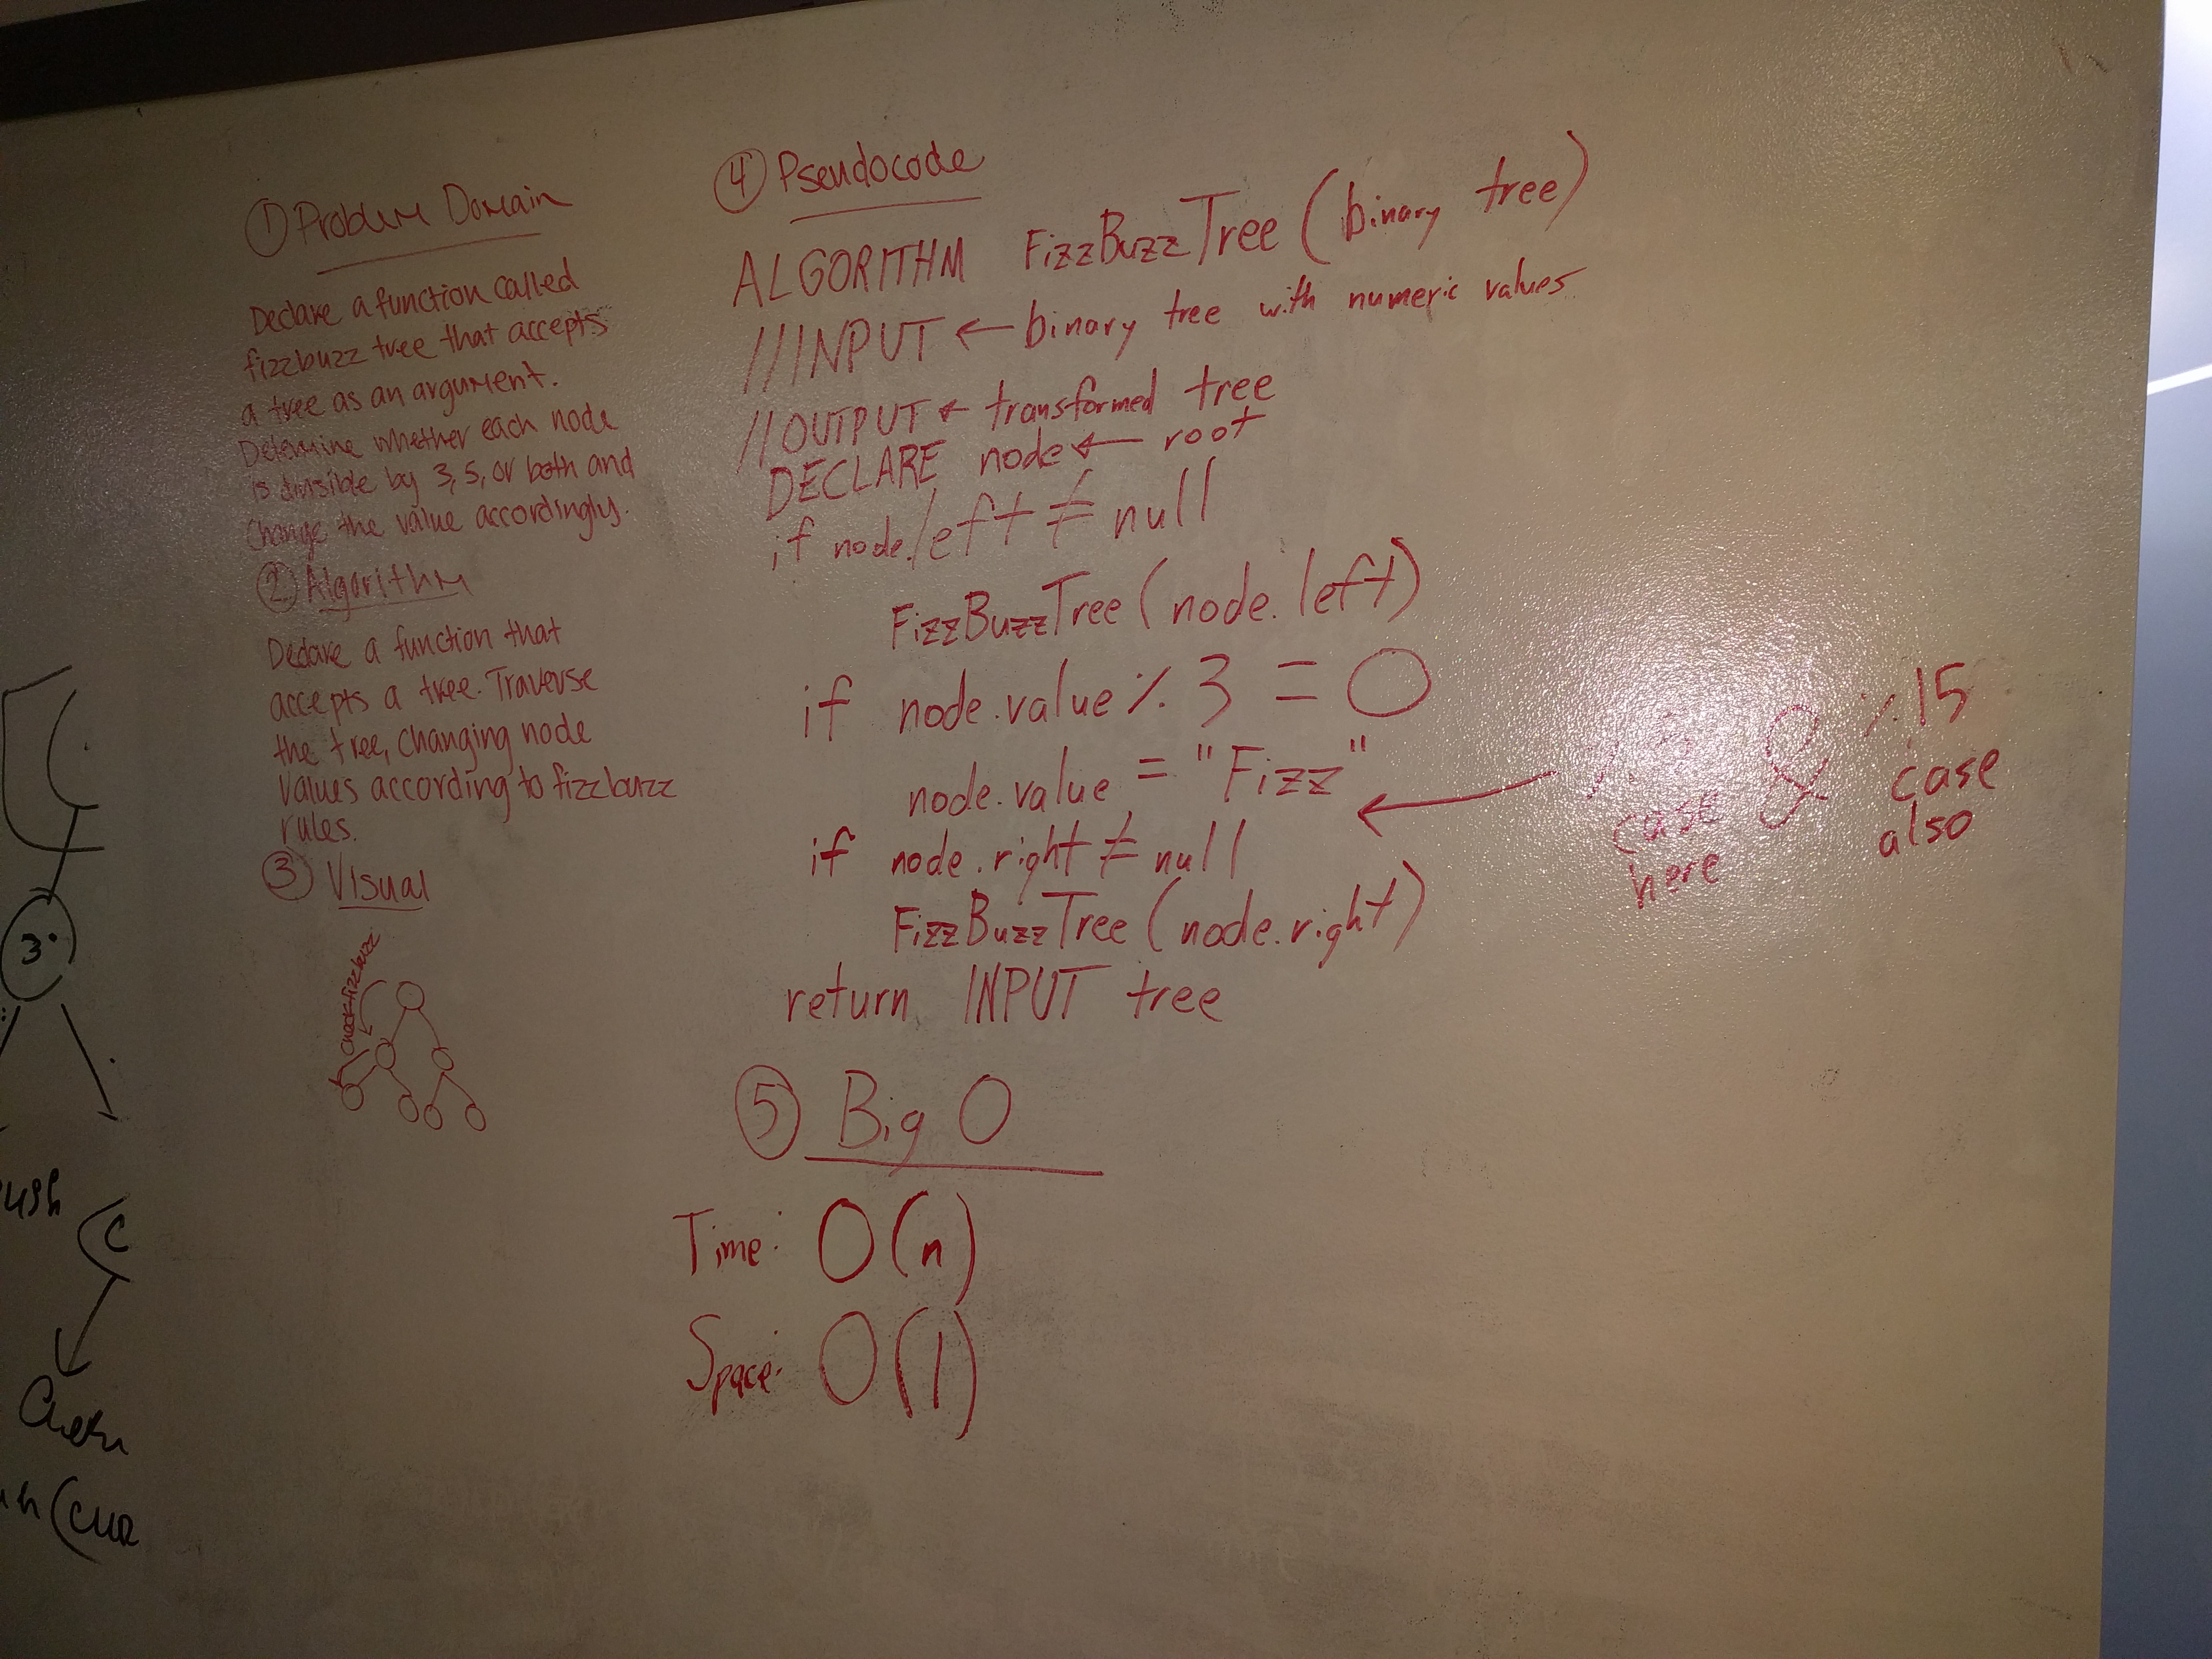 ① Problem Domain
Declare a function called
fizzbuzz tree that accepts
a tree as an argument.
Determine whether each node
is divisible by 3, 5, or both and
Change the value accordingly.
② Algorithm
Declare a function that
accepts a tree. Traverse
the tree, changing node
values according to fizzbuzz
rules.
③ Visual
check fizzbuzz
④ Pseudocode
ALGORITHM FizzBuzzTree (binary tree)
//INPUT ← binary tree with numeric values
//OUTPUT ← transformed tree
DECLARE node ← root
if node.left ≠ null
FizzBuzzTree (node.left)
if node.value % 3 = 0
node.value = "Fizz"
if node.right ≠ null
FizzBuzzTree (node.right)
return INPUT tree
← case here & % 15 case also
⑤ Big O
Time: O(n)
Space: O(1)
3
ush
C